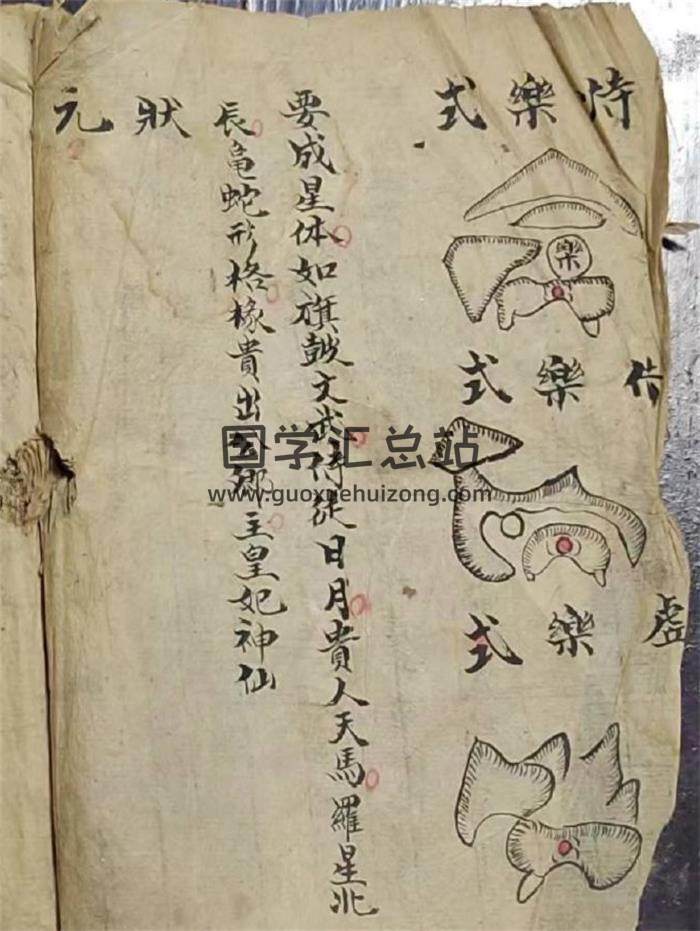 恃樂式
樂
樂式
虛樂式
要成星体如旗皷文武侍從日月貴人天馬羅星北
辰龟蛇形格椽貴出公卿主皇妃神仙
狀元
国学汇总站
www.guoxuehuizong.com